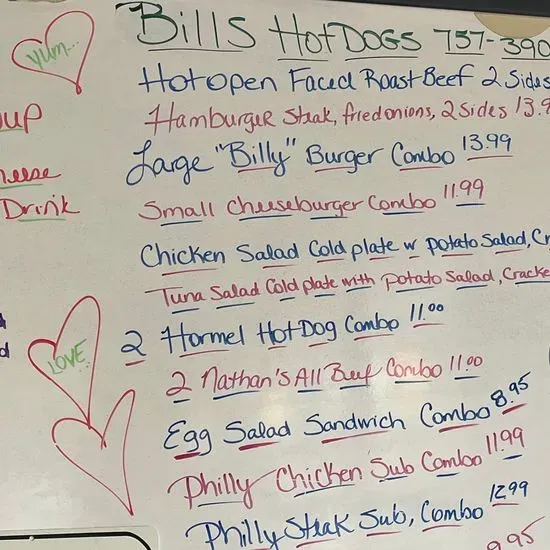 Yum...
Bills HotDOGS 757-390
Hot open Faced Roast Beef 2 Sides
Hamburger Steak, fried onions, 2 Sides 13.9
Large "Billy" Burger Combo 13.99
Drink
Small Cheeseburger Combo 11.99
Chicken Salad Cold plate w potato Salad, Cr
Tuna Salad Cold plate with potato Salad, Cracke
2 Hormel HotDog Combo 11.00
LOVE
2 Nathan's All Beef Combo 11.00
Egg Salad Sandwich Combo 8.95
Philly Chicken Sub Combo 11.99
Philly Steak Sub, Combo 12.99
9.95